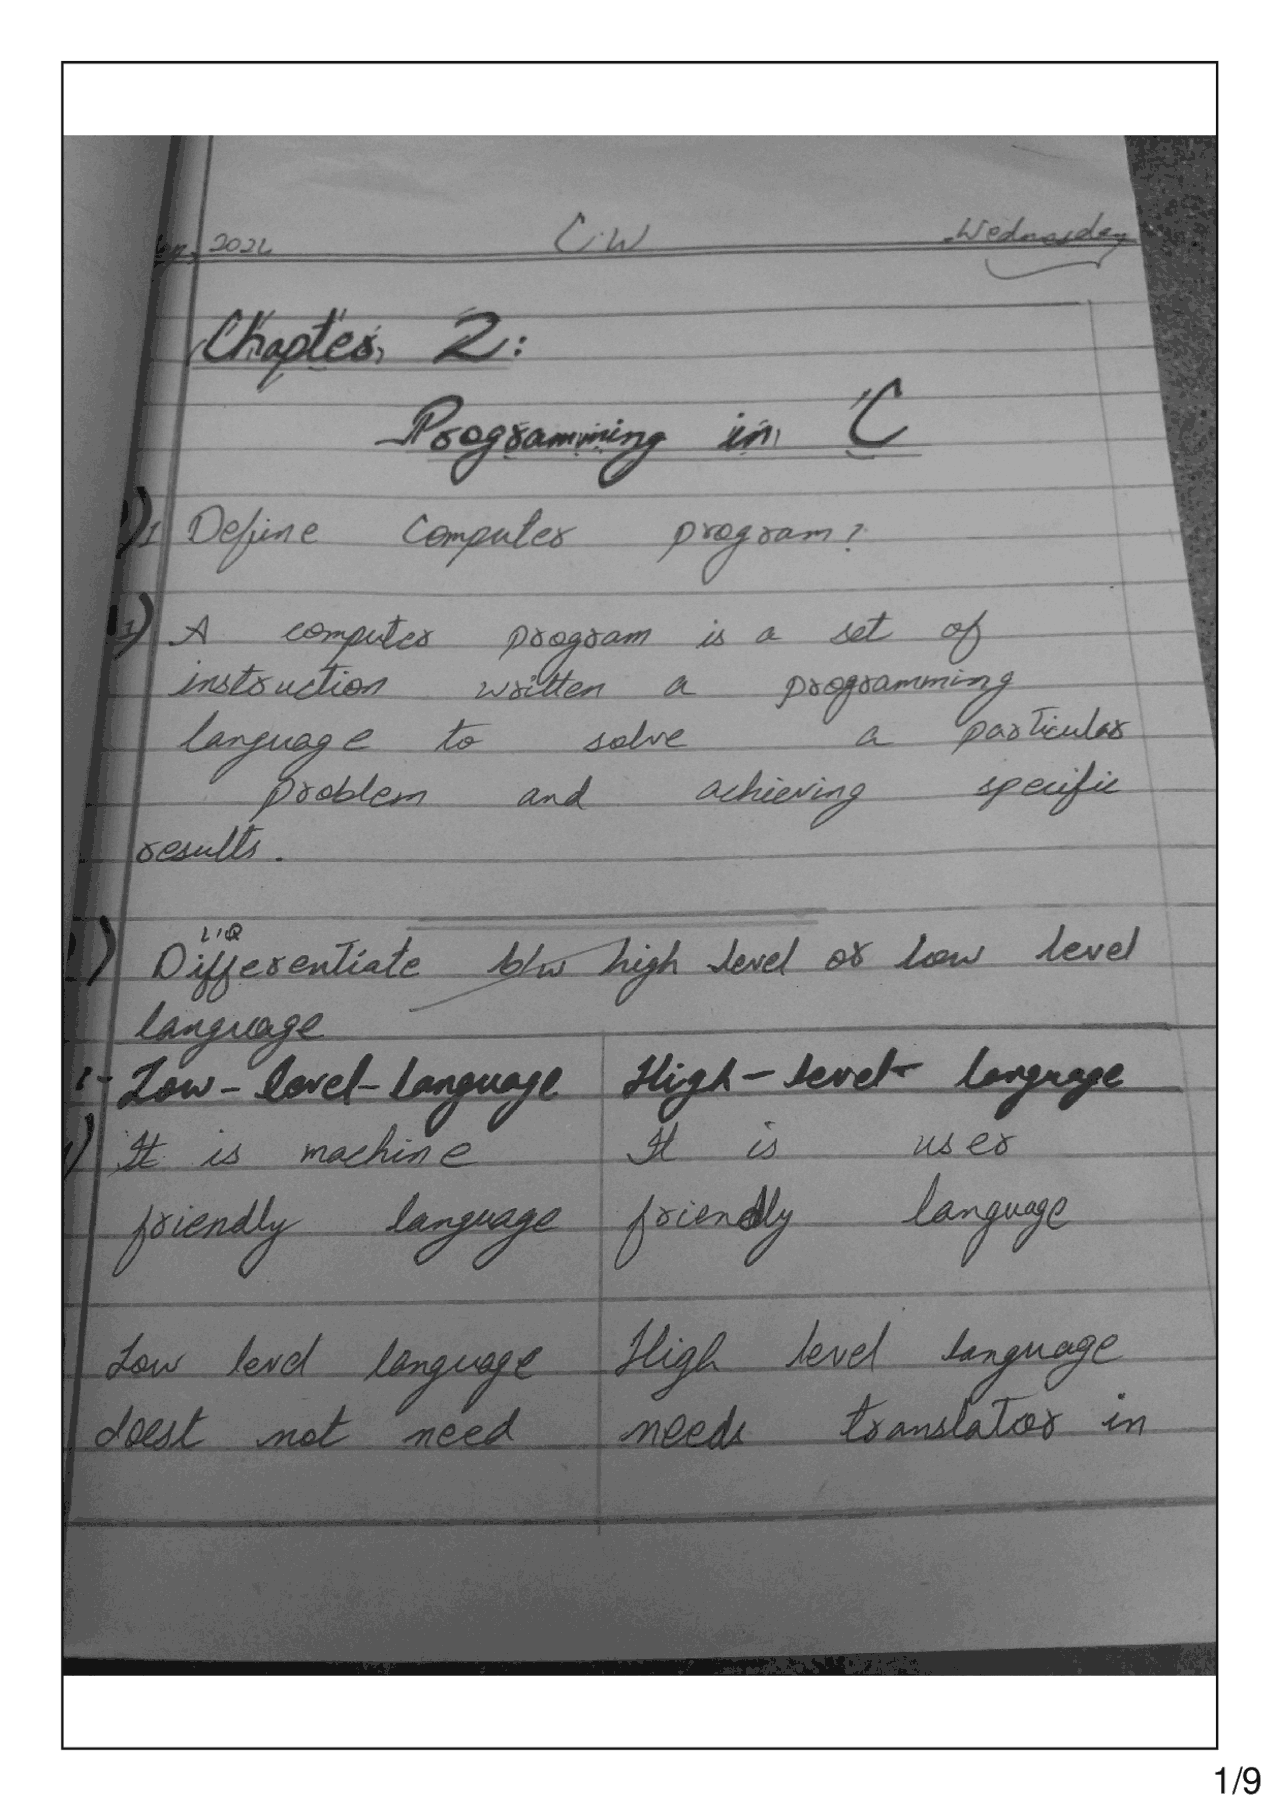 2024 C.W Wednesday
Chapter 2:
Programming in C
1 Define Computer program?
1) A computer program is a set of
instruction written a programming
language to solve a particular
problem and achieving specific
results.
Differentiate b/w high level or low level
language
Low-level-language High-level-language
It is machine It is user
friendly language friendly language
Low level language High level language
doest not need needs translator in
1/9